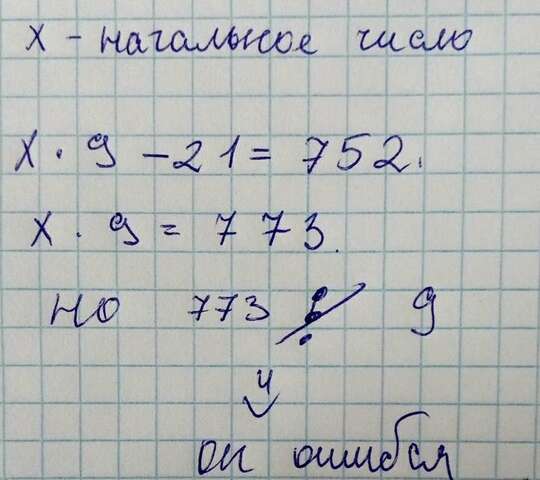 х - начальное число
х · 9 - 21 = 752.
х · 9 = 773.
но 773 ⋮̸ 9
ч
он ошибся